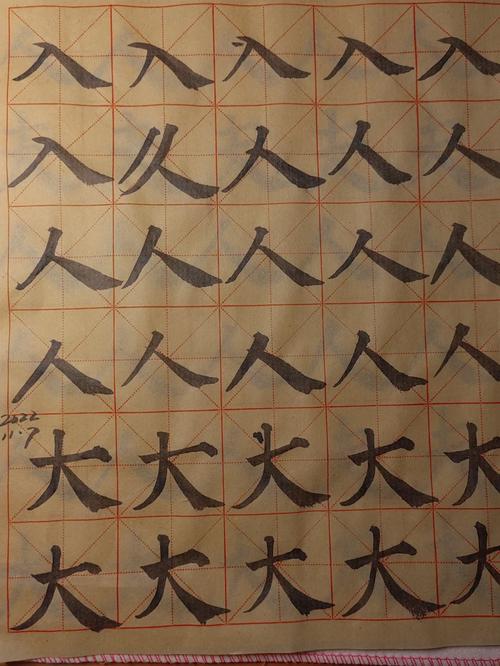 入入入入入
入人人人
人人人人人
人人人人人
2022
11.7
大大大大大
大大大大大